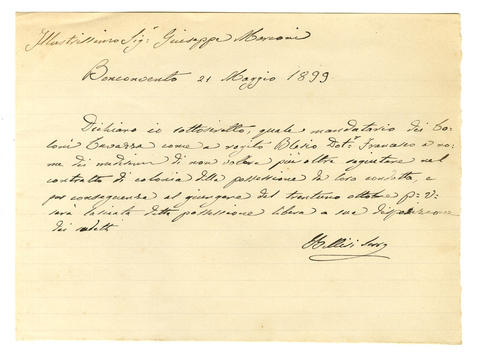 Illustrissimo Sig.r Giuseppe Marconi
Bonconvento 21 Maggio 1899
Dichiaro io sottoscritto, quale mandatario dei Co-
loni Cavazza come a rogito Blesio Dot.r Francesco a no-
me dei medesimi di non volere più oltre seguitare nel
contratto di colonia della possessione da loro condotta, e
per conseguenza al giungere del trentuno ottobre p: v:
sarà lasciata detta possessione libera a sua disposizione
dei